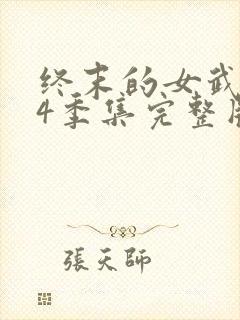 终末的女武
4季集完整版
張天師